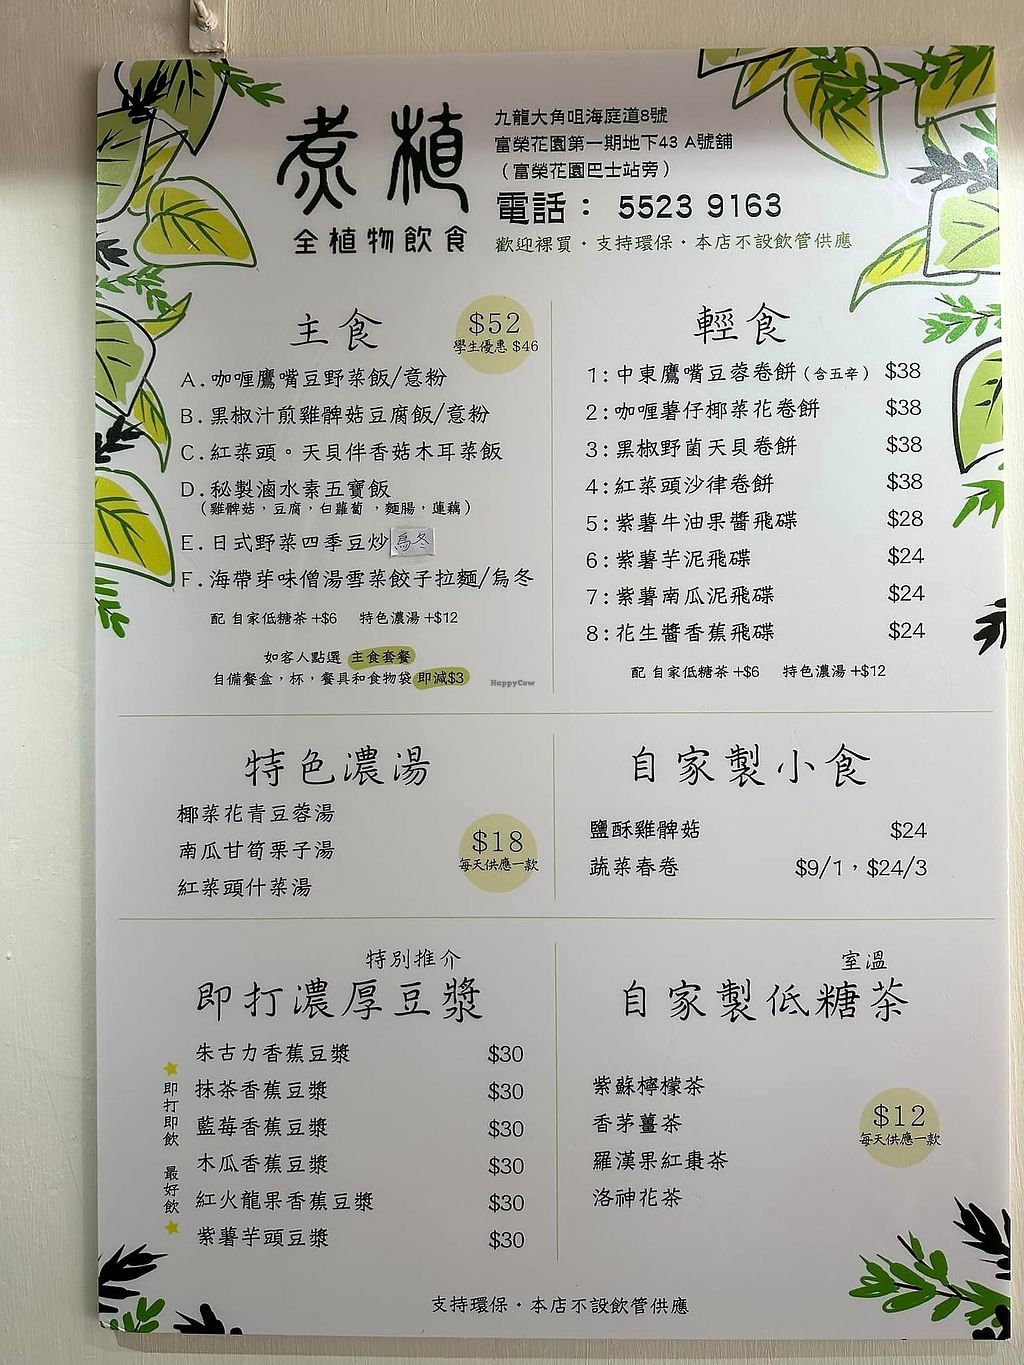 煮植
全植物飲食
九龍大角咀海庭道8號
富榮花園第一期地下43 A號舖
（富榮花園巴士站旁）
電話： 5523 9163
歡迎裸買・支持環保・本店不設飲管供應
主食
$52
學生優惠 $46
A. 咖喱鷹嘴豆野菜飯/意粉
B. 黑椒汁煎雞髀菇豆腐飯/意粉
C. 紅菜頭。天貝伴香菇木耳菜飯
D. 秘製滷水素五寶飯
（雞髀菇，豆腐，白蘿蔔，麵腸，蓮藕）
E. 日式野菜四季豆炒烏冬
F. 海帶芽味僧湯雪菜餃子拉麵/烏冬
配 自家低糖茶 +$6 特色濃湯 +$12
如客人點選 主食套餐
自備餐盒，杯，餐具和食物袋 即減$3
HappyCow
輕食
1: 中東鷹嘴豆蓉卷餅（含五辛） $38
2: 咖喱薯仔椰菜花卷餅 $38
3: 黑椒野菌天貝卷餅 $38
4: 紅菜頭沙律卷餅 $38
5: 紫薯牛油果醬飛碟 $28
6: 紫薯芋泥飛碟 $24
7: 紫薯南瓜泥飛碟 $24
8: 花生醬香蕉飛碟 $24
配 自家低糖茶 +$6 特色濃湯 +$12
特色濃湯
椰菜花青豆蓉湯
南瓜甘筍栗子湯
紅菜頭什菜湯
$18
每天供應一款
自家製小食
鹽酥雞髀菇 $24
蔬菜春卷 $9/1，$24/3
特別推介
即打濃厚豆漿
朱古力香蕉豆漿 $30
抹茶香蕉豆漿 $30
藍莓香蕉豆漿 $30
木瓜香蕉豆漿 $30
紅火龍果香蕉豆漿 $30
紫薯芋頭豆漿 $30
即打即飲 最好飲
室溫
自家製低糖茶
紫蘇檸檬茶
香茅薑茶
羅漢果紅棗茶
洛神花茶
$12
每天供應一款
支持環保・本店不設飲管供應